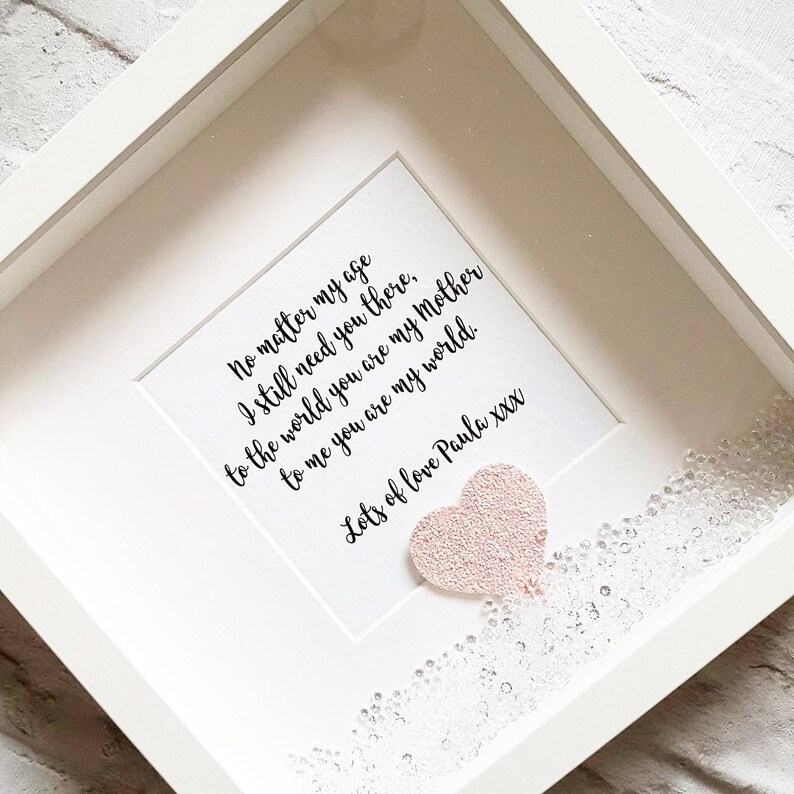 No matter my age
I still need you there,
to the world you are my Mother
to me you are my world.
Lots of love Paula xxx